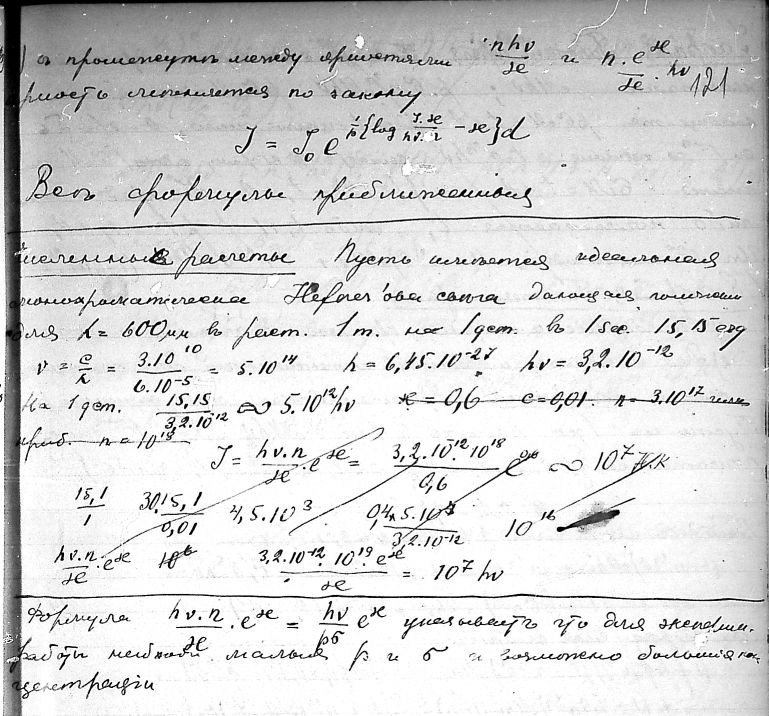 ) въ промежутк между яркостями nhν/ϰ и n·e^ϰ/ϰ · hν 121
яркость меняется по закону
J = J₀ e^{1/p{log J·ϰ/hν·n − ϰ}d}
Все формулы приближенныя
Численные расчеты Пусть имеется идеальная
монохроматическая Hefner'ова свеча дающая
для λ = 600 μμ въ раст. 1 m. на 1 qcm. въ 1 sec 15,15 erg
ν = c/λ = 3.10^10/6.10^-5 = 5.10^14 h = 6,45.10^-27 hν = 3,2.10^-12
На 1 qcm. 15,15/3,2.10^-12 ∾ 5.10^12 hν ϰ = 0,6 c = 0,01. n = 3.10^17 или
приб. n = 10^18
J = hν.n/ϰ · e^ϰ = 3,2.10^-12.10^18/0,6 e^0,6 ∾ 10^7 H.K
15,1/1 30.15,1/0,01 4,5.10^3 0,4.5.10^3/3,2.10^-12 10^16
hν.n/ϰ · e^ϰ 10^6 3,2.10^-12.10^19.e^ϰ/ϰ = 10^7 hν
Формула hν.n/ϰ · e^ϰ = hν/pσ e^ϰ указываетъ что для экспери-
работы необход. малыя p и σ и возможно большия кон-
центраціи